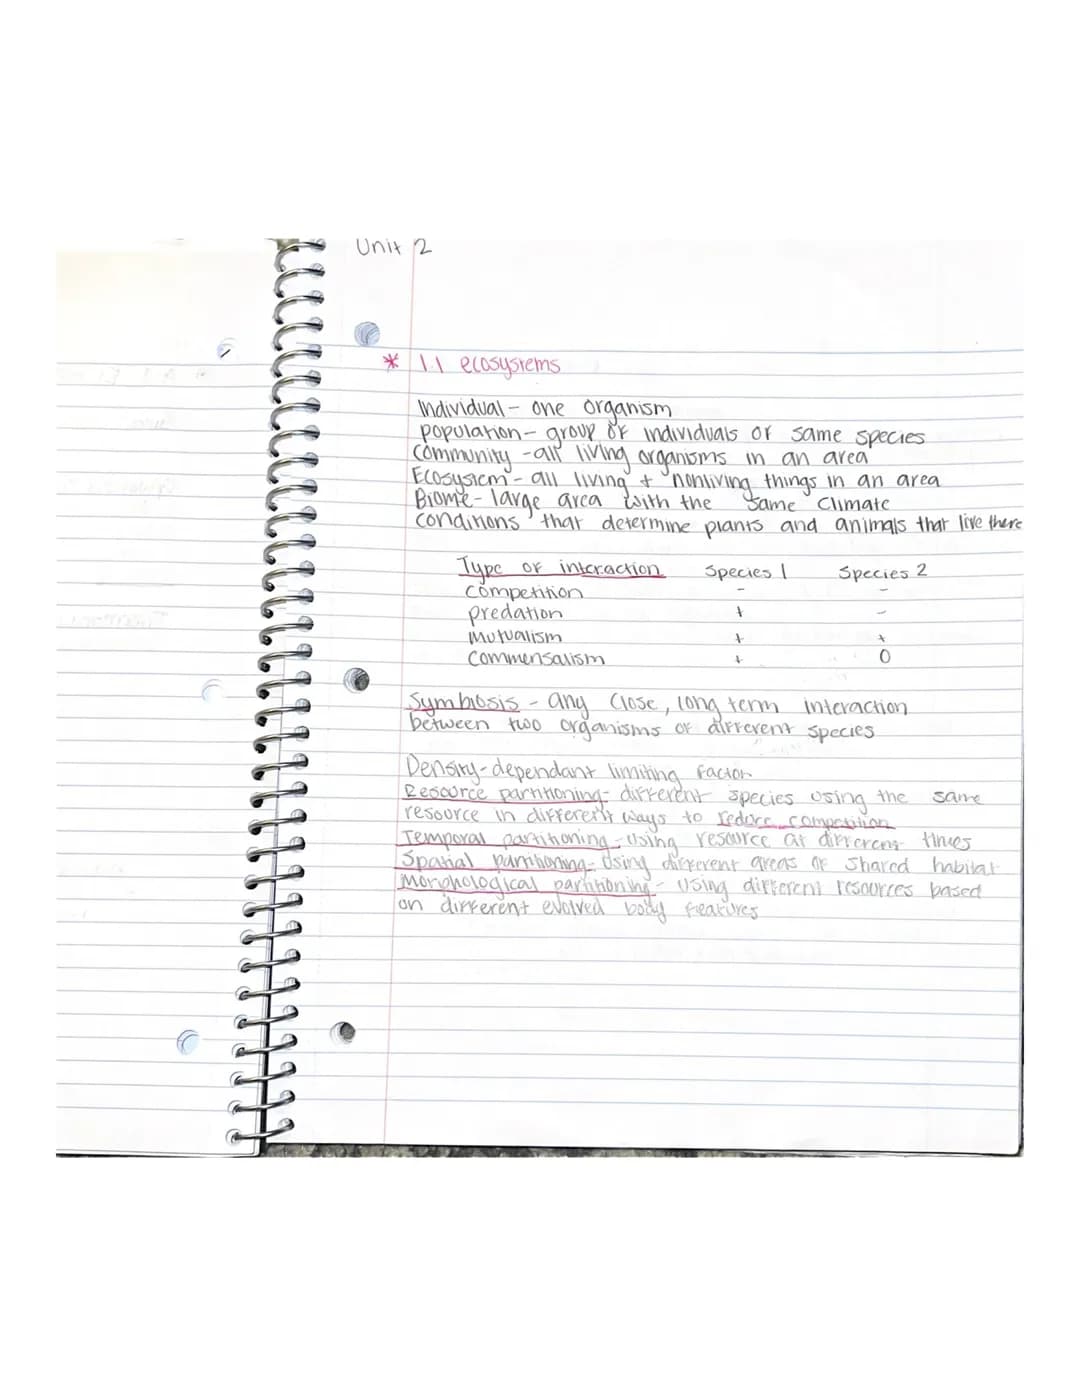 Unit 2
* 1.1 ecosystems
Individual - one organism
population - group of individuals of same species
Community - all living organisms in an area
Ecosystem - all living + nonliving things in an area
Biome - large area with the same climate
conditions that determine plants and animals that live there
Type of interaction Species 1 Species 2
competition - -
predation + -
Mutualism + +
Commensalism + 0
Symbiosis - any close, long term interaction
between two organisms of different species
Density-dependant limiting factor
Resource partitioning - different species using the same
resource in different ways to reduce competition
Temporal partitioning - using resource at different times
Spatial partitioning - Using different areas of shared habitat
Morphological partitioning - using different resources based
on different evolved body features